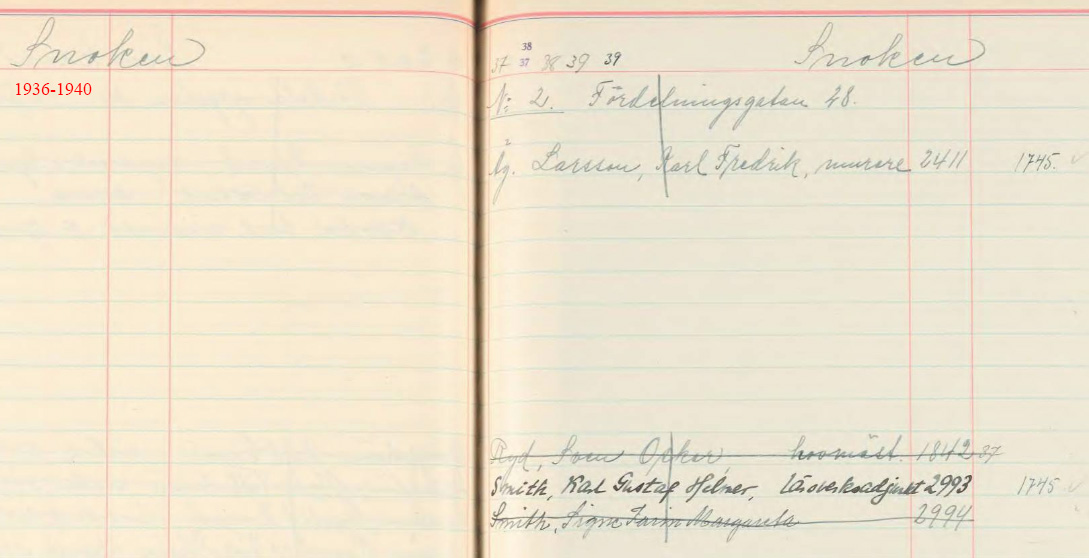 Snoken
1936-1940
Snoken
38
37 37 38 39 39
N: 2. Fördelningsgatan 28.
Äg. Larsson, Karl Fredrik, murare 2411 1745.
Ryd, Sven Oskar, hovmäst. 1842 37
Smith, Karl Gustaf Helmer, läroverksadjunkt 2993 1745
Smith, Signe Karin Margareta 2994